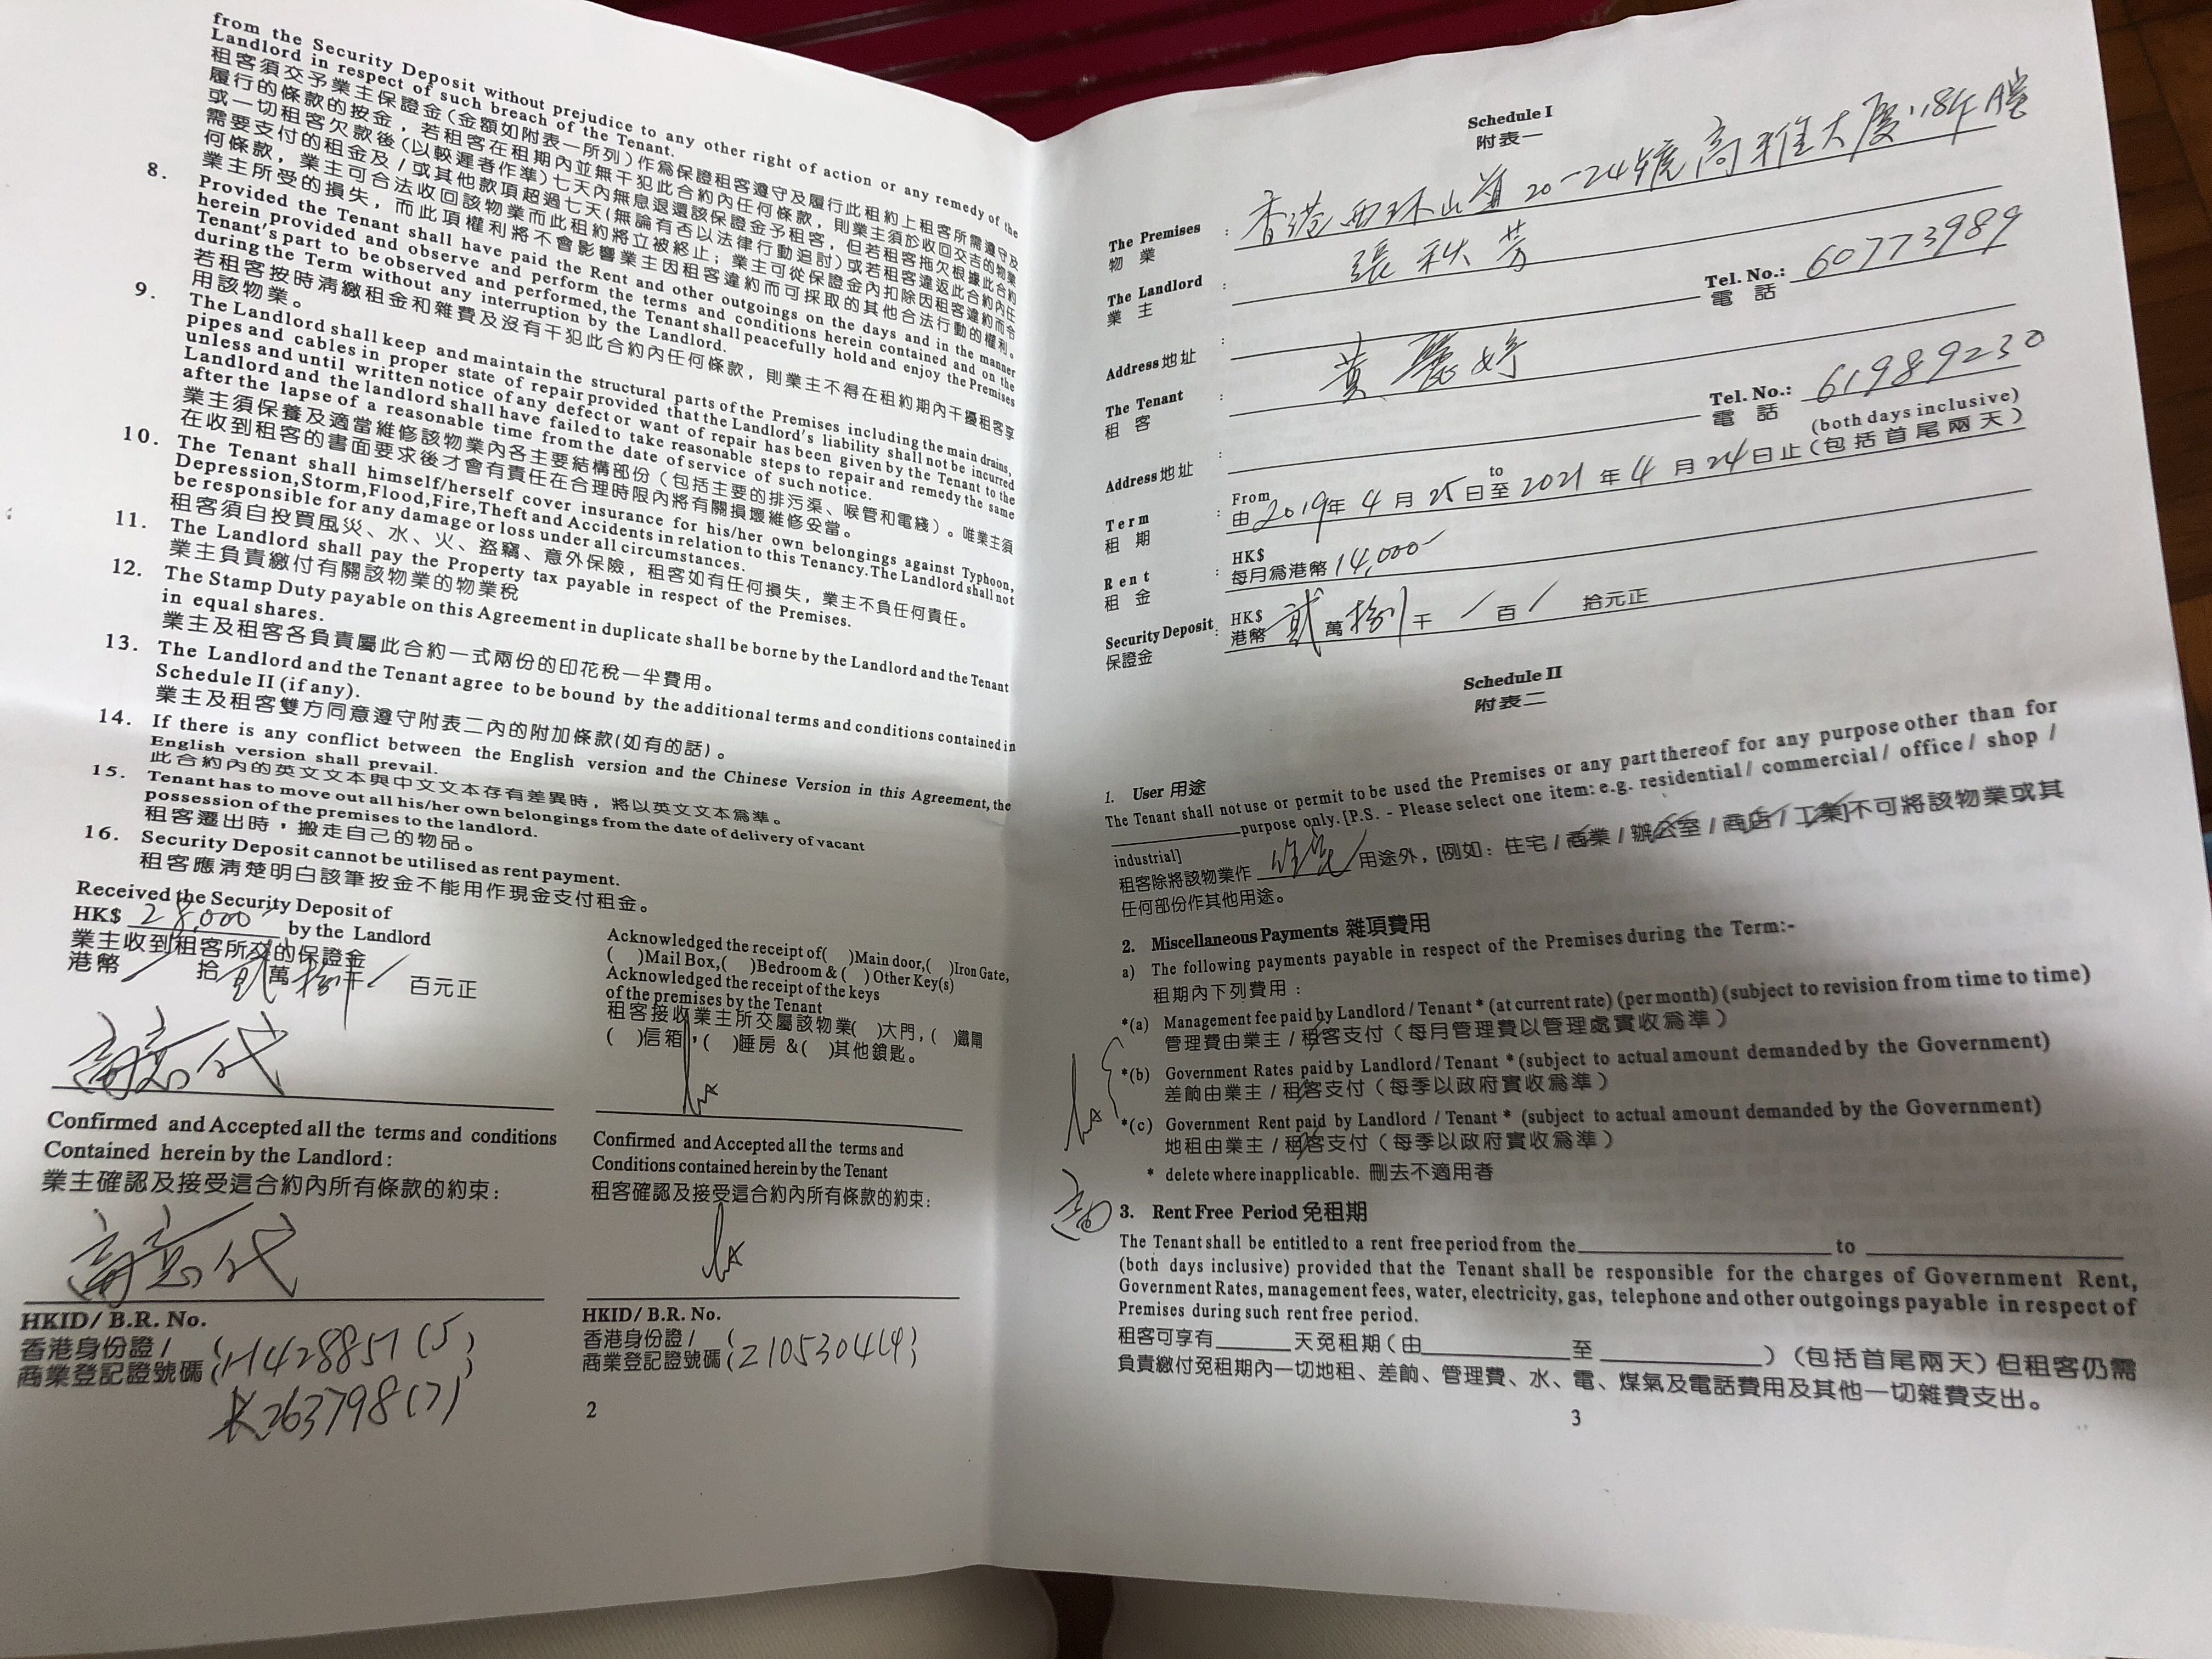 from the Security Deposit without prejudice to any other right of action or any remedy of the
Landlord in respect of such breach of the Tenant.
租客須交予業主保證金(金額如附表一所列)作為保證租客遵守及履行此租約上租客所需遵守及
履行的條款的按金，若租客在租期內並無干犯此合約內任何條款，則業主須於收回交吉的物業
或一切租客欠款後(以較遲者作準)七天內無息退還該保證金予租客，但若租客拖欠根據此合約
需要支付的租金及/或其他款項超過七天(無論有否以法律行動追討)或若租客違返此合約內任
何條款，業主可合法收回該物業而此租約將立被終止；業主可從保證金內扣除因租客違約而令
業主所受的損失，而此項權利將不會影響業主因租客違約而可採取的其他合法行動的權利。
8. Provided the Tenant shall have paid the Rent and other outgoings on the days and in the manner
herein provided and observe and perform the terms and conditions herein contained and on the
Tenant's part to be observed and performed, the Tenant shall peacefully hold and enjoy the Premises
during the Term without any interruption by the Landlord.
若租客按時清繳租金和雜費及沒有干犯此合約內任何條款，則業主不得在租約期內干擾租客享
用該物業。
9. The Landlord shall keep and maintain the structural parts of the Premises including the main drains,
pipes and cables in proper state of repair provided that the Landlord's liability shall not be incurred
unless and until written notice of any defect or want of repair has been given by the Tenant to the
Landlord and the landlord shall have failed to take reasonable steps to repair and remedy the same
after the lapse of a reasonable time from the date of service of such notice.
業主須保養及適當維修該物業內各主要結構部份(包括主要的排污渠、喉管和電綫)。唯業主須
在收到租客的書面要求後才會有責任在合理時限內將有關損壞維修妥當。
10. The Tenant shall himself/herself cover insurance for his/her own belongings against Typhoon,
Depression,Storm,Flood,Fire,Theft and Accidents in relation to this Tenancy.The Landlord shall not
be responsible for any damage or loss under all circumstances.
租客須自投買風災、水、火、盜竊、意外保險，租客如有任何損失，業主不負任何責任。
11. The Landlord shall pay the Property tax payable in respect of the Premises.
業主負責繳付有關該物業的物業稅
12. The Stamp Duty payable on this Agreement in duplicate shall be borne by the Landlord and the Tenant
in equal shares.
業主及租客各負責屬此合約一式兩份的印花稅一半費用。
13. The Landlord and the Tenant agree to be bound by the additional terms and conditions contained in
Schedule II (if any).
業主及租客雙方同意遵守附表二內的附加條款(如有的話)。
14. If there is any conflict between the English version and the Chinese Version in this Agreement, the
English version shall prevail.
此合約內的英文文本與中文文本存有差異時，將以英文文本為準。
15. Tenant has to move out all his/her own belongings from the date of delivery of vacant
possession of the premises to the landlord.
租客遷出時，搬走自己的物品。
16. Security Deposit cannot be utilised as rent payment.
租客應清楚明白該筆按金不能用作現金支付租金。
Received the Security Deposit of
HK$ 28,000 by the Landlord
業主收到租客所交的保證金
港幣 / 拾 貳 萬 捌 千 / 百元正
Acknowledged the receipt of( )Main door,( )Iron Gate,
( )Mail Box,( )Bedroom & ( ) Other Key(s)
Acknowledged the receipt of the keys
of the premises by the Tenant
租客接收業主所交屬該物業( )大門，( )鐵閘
( )信箱，( )睡房 &( )其他鎖匙。
Confirmed and Accepted all the terms and conditions
Contained herein by the Landlord :
業主確認及接受這合約內所有條款的約束：
Confirmed and Accepted all the terms and
Conditions contained herein by the Tenant
租客確認及接受這合約內所有條款的約束：
HKID/ B.R. No.
香港身份證/
商業登記證號碼 ( H428857(5)
K263798(7)
HKID/ B.R. No.
香港身份證/
商業登記證號碼 (Z1053044)
2
Schedule I
附表一
The Premises : 香港西環山道20-24號高雅大廈18年A室
物 業
The Landlord : 張秋芳 Tel. No.: 60773989
業 主 電 話
Address地址 :
The Tenant : 黃麗婷 Tel. No.: 61989230
租 客 電 話
Address地址 :
(both days inclusive)
Term : From 由2019年4月25日至 to 2021年4月24日止(包括首尾兩天)
租 期
Rent : HK$ 每月為港幣14,000-
租 金
Security Deposit : HK$ 港幣 貳 萬 捌 千 / 百 / 拾元正
保證金
Schedule II
附表二
1. User 用途
The Tenant shall not use or permit to be used the Premises or any part thereof for any purpose other than for
purpose only. [P.S. - Please select one item: e.g. residential / commercial / office / shop /
industrial]
租客除將該物業作 住宅 用途外，[例如：住宅/商業/辦公室/商店/工業]不可將該物業或其
任何部份作其他用途。
2. Miscellaneous Payments 雜項費用
a) The following payments payable in respect of the Premises during the Term:-
租期內下列費用：
*(a) Management fee paid by Landlord / Tenant * (at current rate) (per month) (subject to revision from time to time)
管理費由業主 / 租客支付 (每月管理費以管理處實收為準)
*(b) Government Rates paid by Landlord / Tenant * (subject to actual amount demanded by the Government)
差餉由業主 / 租客支付 (每季以政府實收為準)
*(c) Government Rent paid by Landlord / Tenant * (subject to actual amount demanded by the Government)
地租由業主 / 租客支付 (每季以政府實收為準)
* delete where inapplicable. 刪去不適用者
3. Rent Free Period 免租期
The Tenant shall be entitled to a rent free period from the to
(both days inclusive) provided that the Tenant shall be responsible for the charges of Government Rent,
Government Rates, management fees, water, electricity, gas, telephone and other outgoings payable in respect of
Premises during such rent free period.
租客可享有 天免租期 (由 至 ) (包括首尾兩天) 但租客仍需
負責繳付免租期內一切地租、差餉、管理費、水、電、煤氣及電話費用及其他一切雜費支出。
3